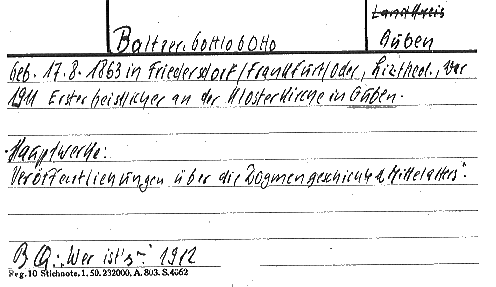 Landkreis
Baltzer, Gottlob Otto
Guben
geb. 17.8. 1863 in Friedersdorf/Frankfurt/Oder, Liz.theol., war
1911 Erster Geistlicher an der Klosterkirche in Guben.
Hauptwerke:
Veröffentlichungen über die Dogmengeschichte d. Mittelalters".
BQ: „Wer ist's" 1912
Reg. 10 Stichnote. 1. 50. 232000. A. 803. S. 4862